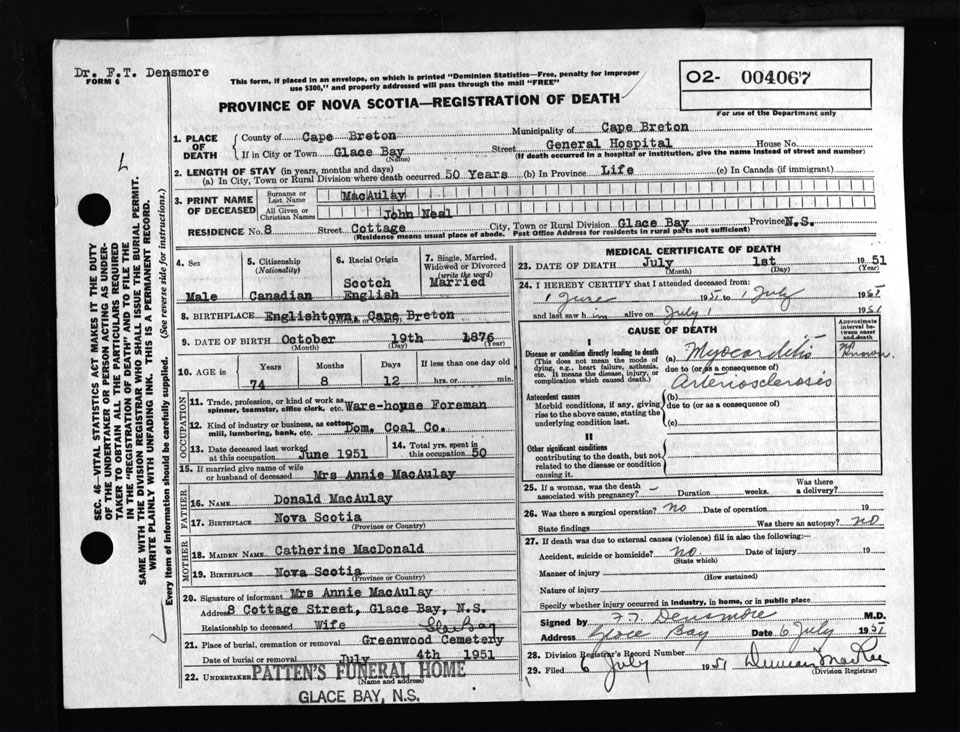 Dr. F.T. Densmore
FORM 6
This form, if placed in an envelope, on which is printed "Dominion Statistics—Free, penalty for improper
use $300," and properly addressed will pass through the mail "FREE"
PROVINCE OF NOVA SCOTIA—REGISTRATION OF DEATH
02- 004067
For use of the Department only
1. PLACE OF DEATH
County of Cape Breton Municipality of Cape Breton
If in City or Town Glace Bay Street General Hospital House No.
(Name) (If death occurred in a hospital or institution, give the name instead of street and number)
2. LENGTH OF STAY (in years, months and days)
(a) In City, Town or Rural Division where death occurred 50 Years (b) In Province Life (c) In Canada (if immigrant)
3. PRINT NAME OF DECEASED
Surname or Last Name MacAulay
All Given or Christian Names John Neal
RESIDENCE No. 8 Street Cottage City, Town or Rural Division Glace Bay Province N.S.
(Residence means usual place of abode. Post Office Address for residents in rural parts not sufficient)
4. Sex
Male
5. Citizenship
(Nationality)
Canadian
6. Racial Origin
Scotch
English
7. Single, Married,
Widowed or Divorced
(write the word)
Married
8. BIRTHPLACE Englishtown, Cape Breton
(Province or Country)
9. DATE OF BIRTH October 19th 1876
(Month) (Day)
10. AGE in Years Months Days If less than one day old
74 8 12 hrs. or min.
OCCUPATION
11. Trade, profession, or kind of work as
spinner, teamster, office clerk, etc. Ware-house Foreman
12. Kind of industry or business, as cotton
mill, lumbering, bank, etc. Dom. Coal Co.
13. Date deceased last worked
at this occupation June 1951
14. Total yrs. spent in
this occupation 50
15. If married give name of wife
or husband of deceased Mrs Annie MacAulay
FATHER
16. NAME Donald MacAulay
17. BIRTHPLACE Nova Scotia
(Province or Country)
MOTHER
18. MAIDEN NAME Catherine MacDonald
19. BIRTHPLACE Nova Scotia
(Province or Country)
20. Signature of informant Mrs Annie MacAulay
Address 8 Cottage Street, Glace Bay, N.S.
Relationship to deceased Wife Glace Bay
21. Place of burial, cremation or removal Greenwood Cemetery
Date of burial or removal July 4th 1951
22. UNDERTAKER PATTEN'S FUNERAL HOME
(Name and address)
GLACE BAY, N.S.
MEDICAL CERTIFICATE OF DEATH
23. DATE OF DEATH July 1st 1951
(Month) (Day) (Year)
24. I HEREBY CERTIFY that I attended deceased from:
1 June 1951 to 1 July 1951
and last saw him alive on July 1 1951
CAUSE OF DEATH
Approximate
interval be-
tween onset
and death
I
Disease or condition directly leading to death
(This does not mean the mode of
dying, e.g., heart failure, asthenia,
etc. It means the disease, injury, or
complication which caused death.)
(a) Myocarditis
not known
due to (or as a consequence of)
Arteriosclerosis
Antecedent causes
Morbid conditions, if any, giving
rise to the above cause, stating the
underlying condition last.
(b)
due to (or as a consequence of)
(c)
II
Other significant conditions
contributing to the death, but not
related to the disease or condition
causing it.
25. If a woman, was the death
associated with pregnancy? – Duration weeks. Was there
a delivery?
26. Was there a surgical operation? no Date of operation 19
State findings Was there an autopsy? no
27. If death was due to external causes (violence) fill in also the following:
Accident, suicide or homicide? no. Date of injury 19
(State which)
Manner of injury
(How sustained)
Nature of injury
Specify whether injury occurred in industry, in home, or in public place
Signed by F.T. Densmore M.D.
Address Glace Bay Date 6 July 1951
28. Division Registrar's Record Number
29. Filed 6 July 1951 Duncan MacRae
(Division Registrar)
SEC. 46—VITAL STATISTICS ACT MAKES IT THE DUTY
OF THE UNDERTAKER OR PERSON ACTING AS UNDER-
TAKER TO OBTAIN ALL THE PARTICULARS REQUIRED
IN THE "REGISTRATION OF DEATH" AND TO FILE THE
SAME WITH THE DIVISION REGISTRAR WHO SHALL ISSUE THE BURIAL PERMIT.
WRITE PLAINLY WITH UNFADING INK. THIS IS A PERMANENT RECORD.
Every item of information should be carefully supplied. (See reverse side for instructions.)